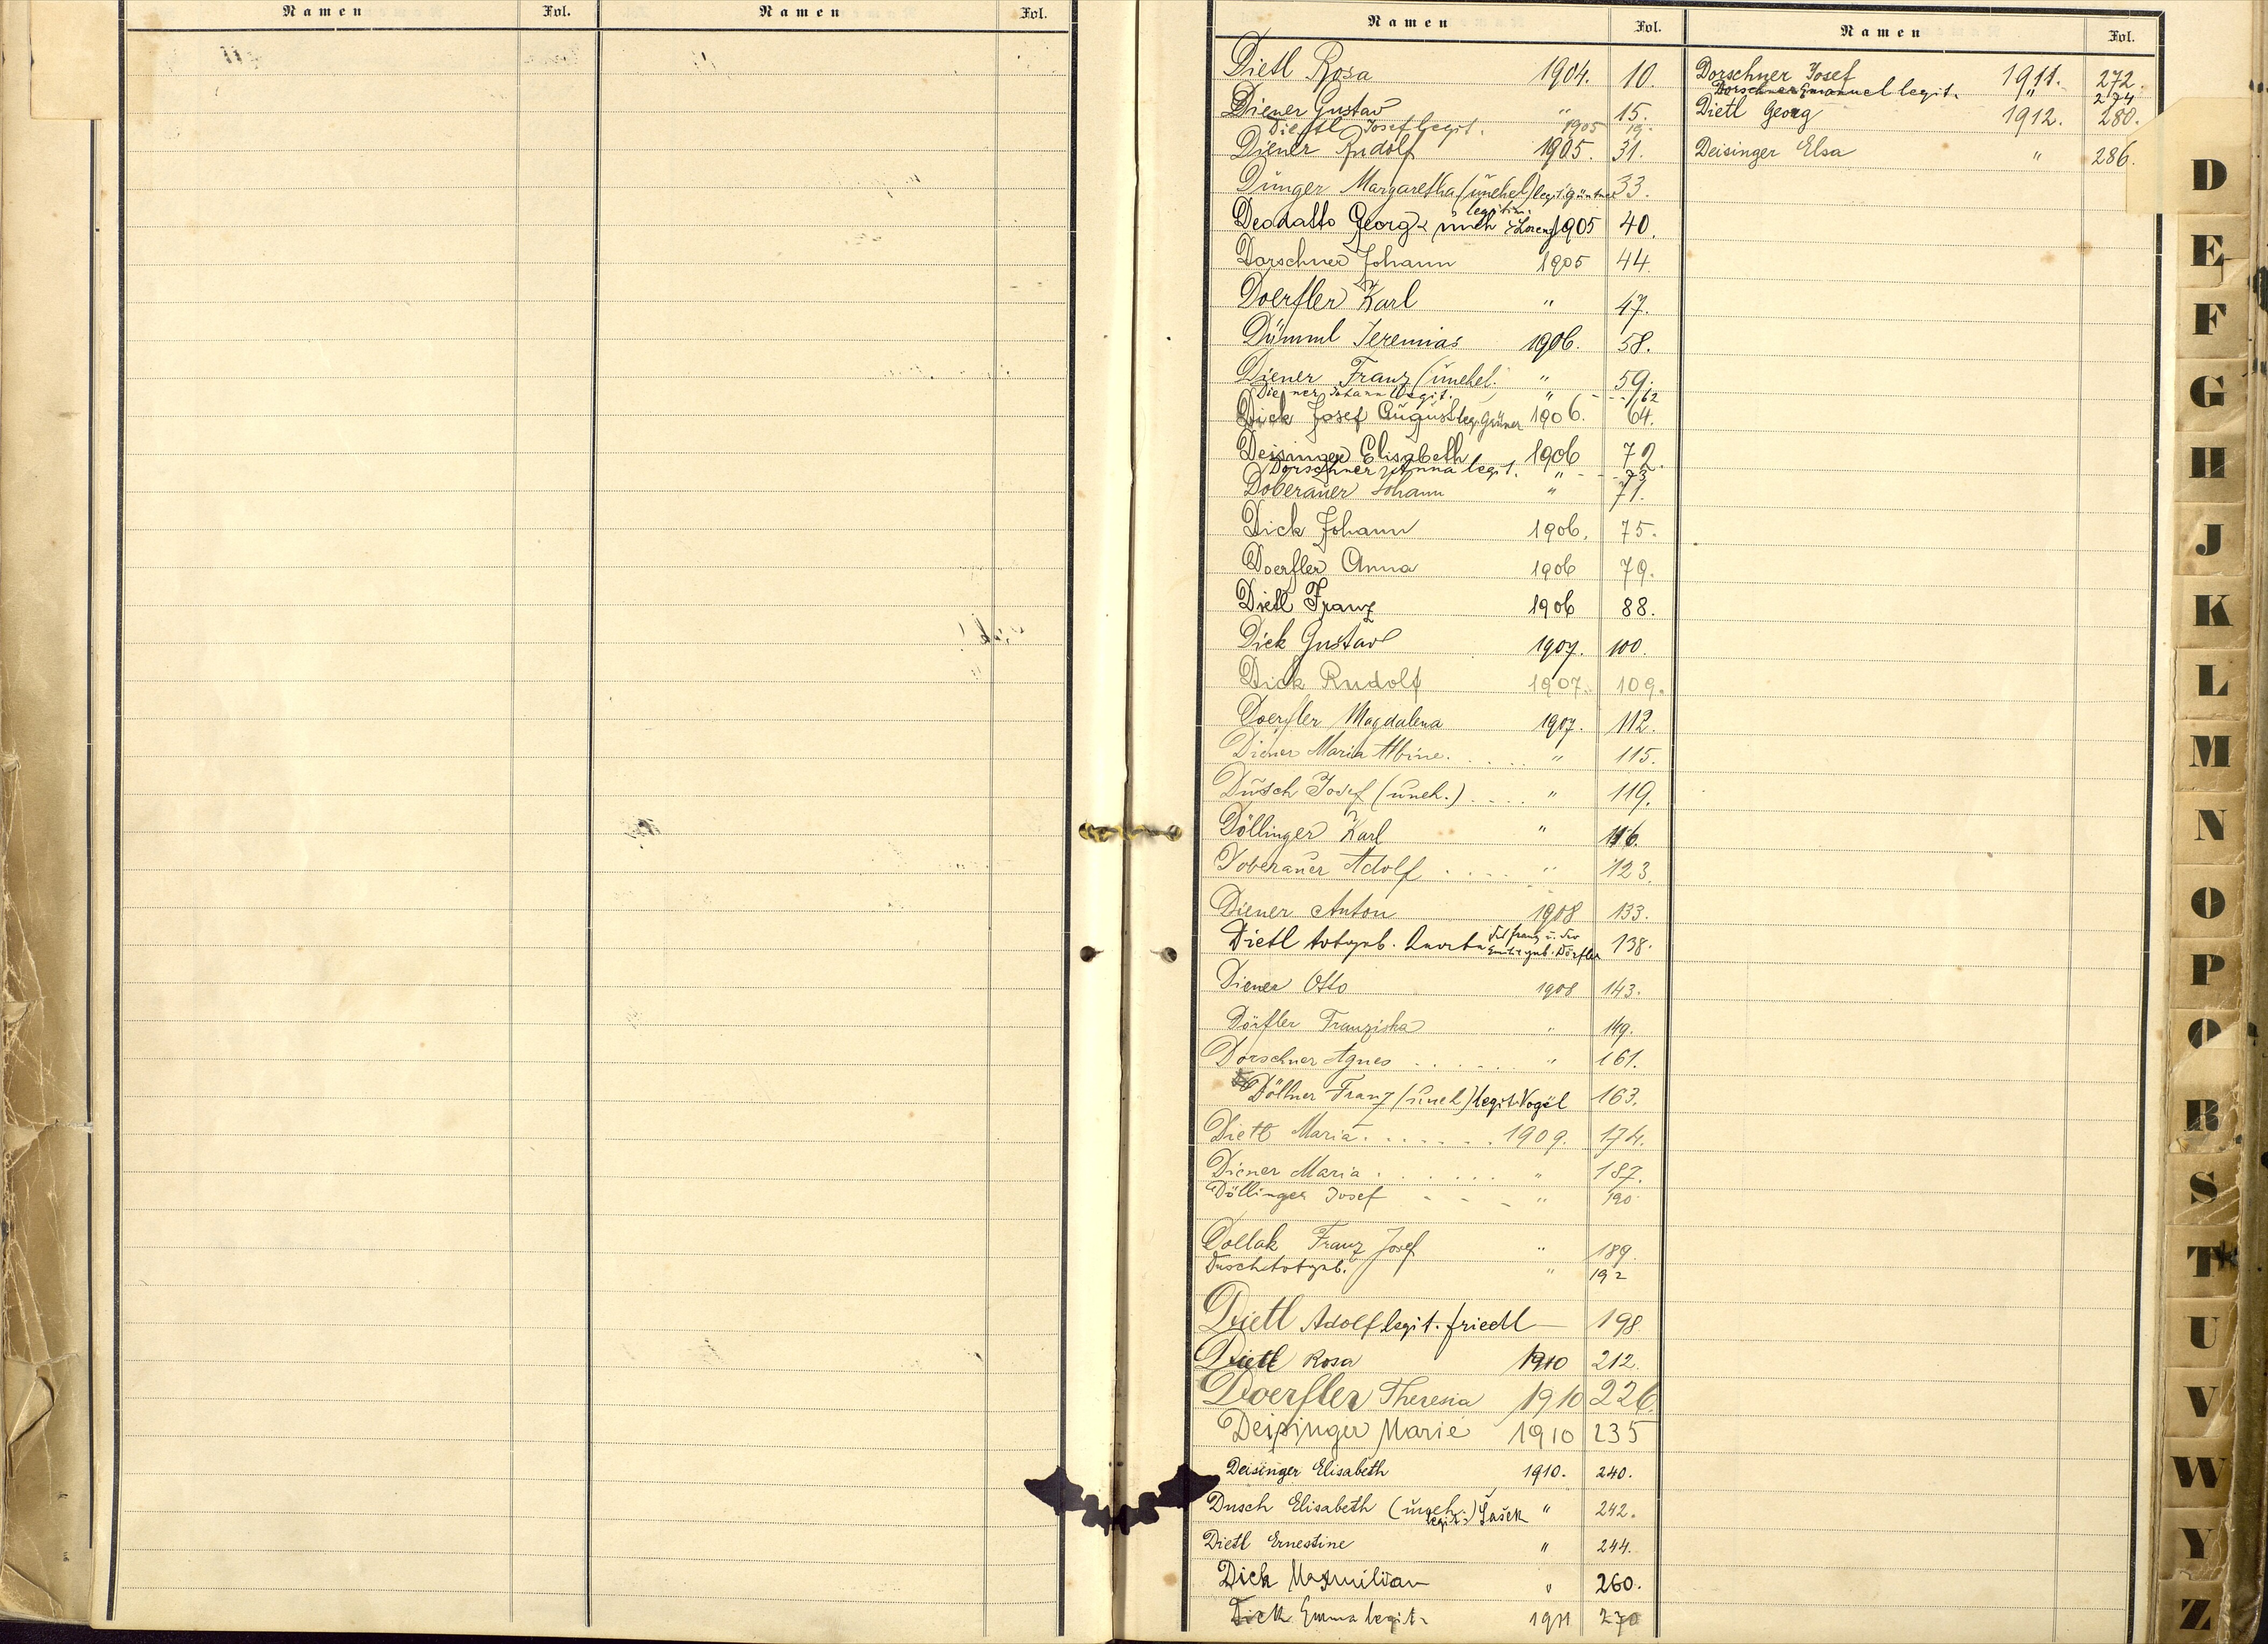 Namen Fol. Namen Fol.
Namen Fol. Namen Fol.
Dietl Rosa 1904. 10.
Diener Gustav " 15.
Dietl Josef legit. 1905 19.
Diener Rudolf 1905. 31.
Dŭnger Margaretha (ŭnehel) legit. Güntner 33.
Deodatto Georg ŭneh legitim. Lorenz 1905 40.
Dorschner Johann 1905 44.
Doerfler Karl " 47.
Dümml Jeremias 1906. 58.
Diener Franz (ŭnehel. " 59.
Diener Johann legit. " 62
Dick Josef Aŭgŭst leg. Grüner 1906. 64.
Deisinger Elisabeth 1906 72.
Dorschner Anna legit. " 73
Doberaŭer Johann " 71.
Dick Johann 1906. 75.
Doerfler Anna 1906 79.
Dietl Franz 1906 88.
Dick Gustav 1907. 100.
Dick Rudolf 1907. 109.
Doerfler Magdalena 1907. 112.
Diener Maria Albine. " 115.
Dŭsch Josef (ŭneh.) " 119.
Döllinger Karl " 116.
Doberaŭer Adolf " 123.
Diener Anton 1908 133.
Dietl totgeb. des Franz ŭ. der Emilie geb. Dörfler 138.
Diener Otto 1908 143.
Dörfler Franziska " 149.
Dorschner Agnes " 161.
Döllner Franz (ŭneh) legit. Vogel 163.
Dietl Maria 1909. 174.
Diener Maria " 187.
Döllinger Josef " 190
Dollak Franz Josef " 189.
Dusch totgeb. " 192
Dietl Adolf legit. Friedl 198.
Dietl Rosa 1910 212.
Doerfler Theresia 1910 226.
Deisinger Marie 1910 235
Deisinger Elisabeth 1910. 240.
Dusch Elisabeth (ŭneh.) legit. Šašek " 242.
Dietl Ernestine " 244.
Dick Maxmilian " 260.
Dick Emma legit. 1911 270
Dorschner Josef 1911. 272.
Dorschner Emanuel legit. " 274
Dietl Georg 1912. 280.
Deisinger Elsa " 286.
D
E
F
G
H
J
K
L
M
N
O
P
R
S
T
U
V
W
Y
Z